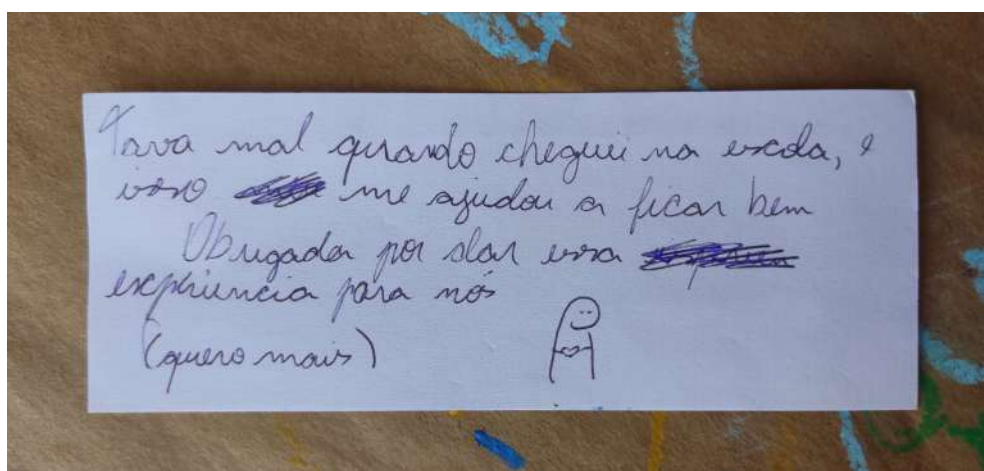 Tava mal quando cheguei na escola, e
isso me ajudou a ficar bem
Obrigada por dar essa
experiencia para nós
(quero mais)